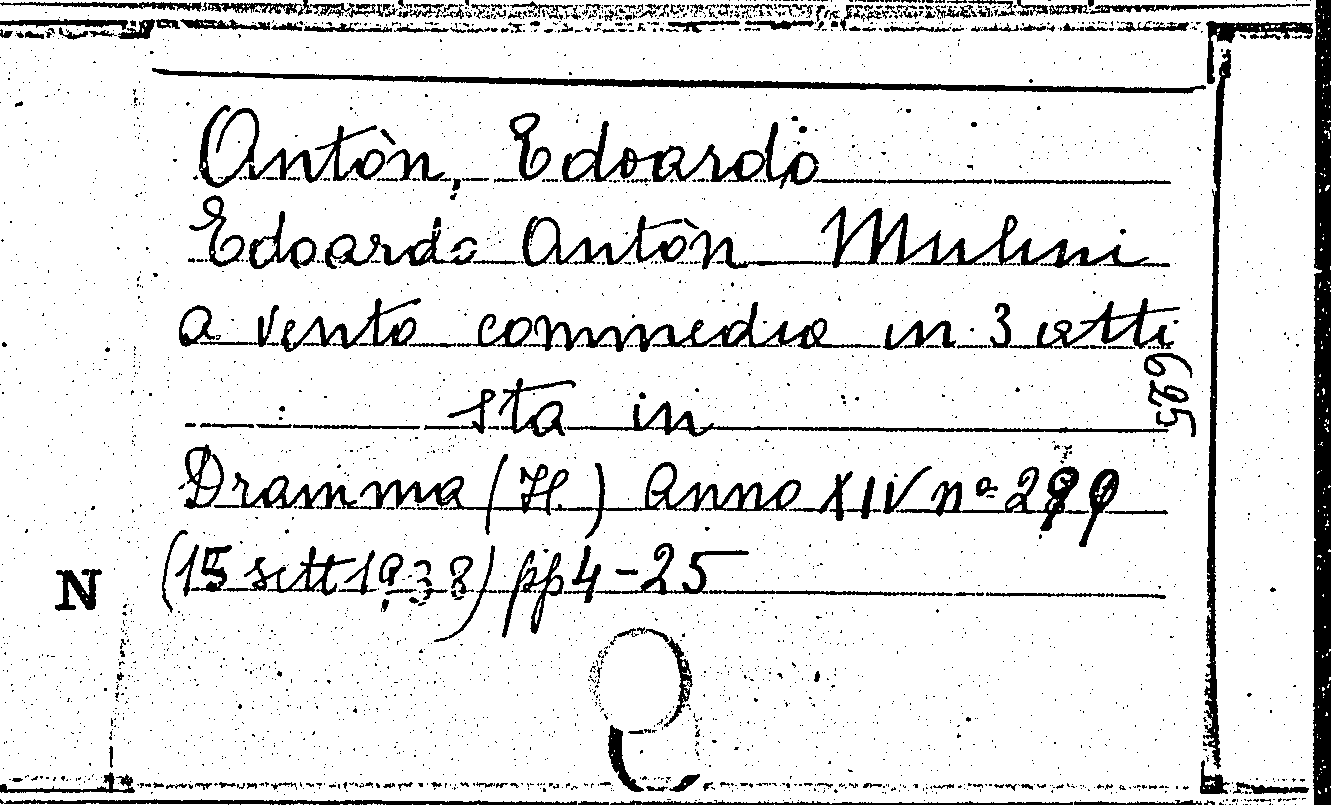 Antòn, Edoardo
Edoardo Antòn Mulini
a vento commedia in 3 atti
625
sta in
Dramma (Il) Anno XIV nº
(15 sett 1938) pp 4-25
N